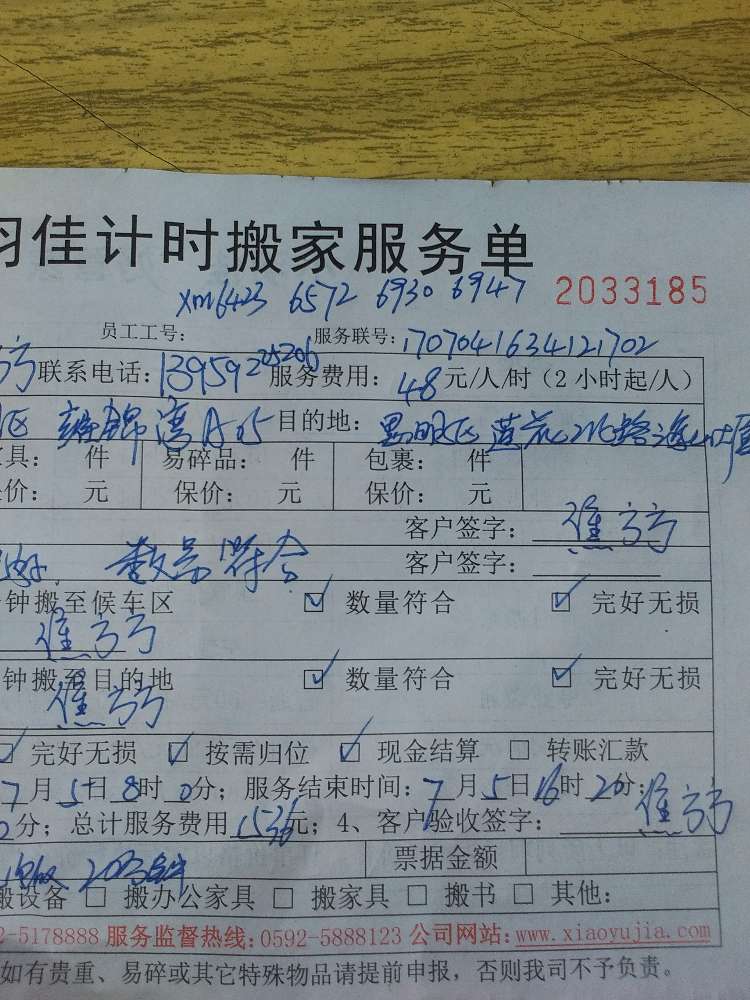 羽佳计时搬家服务单
xm6423 6572 6930 6947 2033185
员工工号: 服务联号: 1707041634121702
联系电话: 服务费用: 48 元/人/时（2小时起/人）
区 锦湾A05 目的地: 思明区 莲花北路
具: 件 易碎品: 件 包裹: 件
价: 元 保价: 元 保价: 元
客户签字:
数量符合 客户签字:
钟搬至候车区 ☑ 数量符合 ☑ 完好无损
钟搬至目的地 ☑ 数量符合 ☑ 完好无损
☑ 完好无损 ☑ 按需归位 ☑ 现金结算 □ 转账汇款
7月5日8时0分；服务结束时间: 7月5日16时20分；
0分；总计服务费用1536元；4、客户验收签字:
票据金额
搬设备 □ 搬办公家具 □ 搬家具 □ 搬书 □ 其他:
2-5178888 服务监督热线:0592-5888123 公司网站:www.xiaoyujia.com
如有贵重、易碎或其它特殊物品请提前申报，否则我司不予负责。